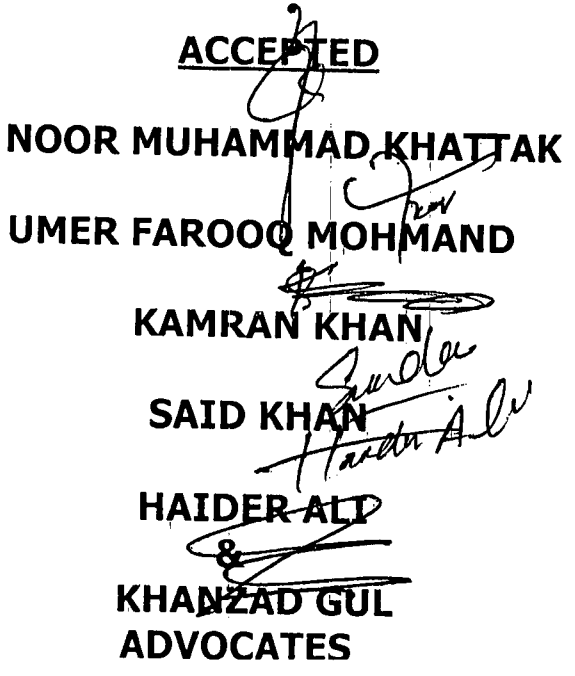 ACCEPTED
NOOR MUHAMMAD KHATTAK
UMER FAROOQ MOHMAND
KAMRAN KHAN
SAID KHAN
Haider Ali
HAIDER ALI
&
KHANZAD GUL
ADVOCATES